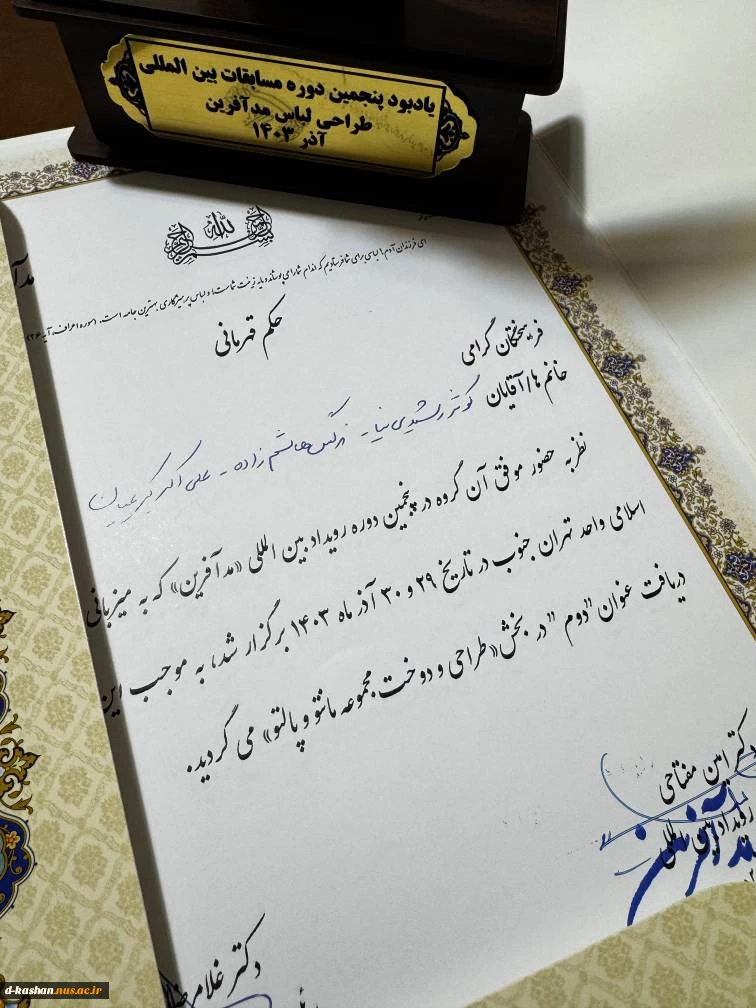 یادبود پنجمین دوره مسابقات بین المللی
طراحی لباس مدآفرین
آذر ۱۴۰۳
بسم الله الرحمن الرحیم
ای فرزندان آدم! لباسی برای شما فرستادیم که اندام شما را می پوشاند و مایه زینت شماست؛ و لباس پرهیزگاری بهترین جامه است. (سوره اعراف، آیه ۲۶)
حکم قهرمانی
فرهیختگان گرامی
خانم ها/آقایان کوثر رشیدی نیا - نرگس هاشم زاده - علی اکبر
نظر به حضور موفق آن گروه در پنجمین دوره رویداد بین المللی «مدآفرین» که به میزبانی
اسلامی واحد تهران جنوب در تاریخ ۲۹ و ۳۰ آذر ماه ۱۴۰۳ برگزار شد، به موجب این
دریافت عنوان "دوم" در بخش «طراحی و دوخت مجموعه مانتو و پالتو» می گردید.
دکتر امین مفتاحی
رویداد بین المللی
مدآفرین
دکتر غلامرضا
d-kashan.nus.ac.ir